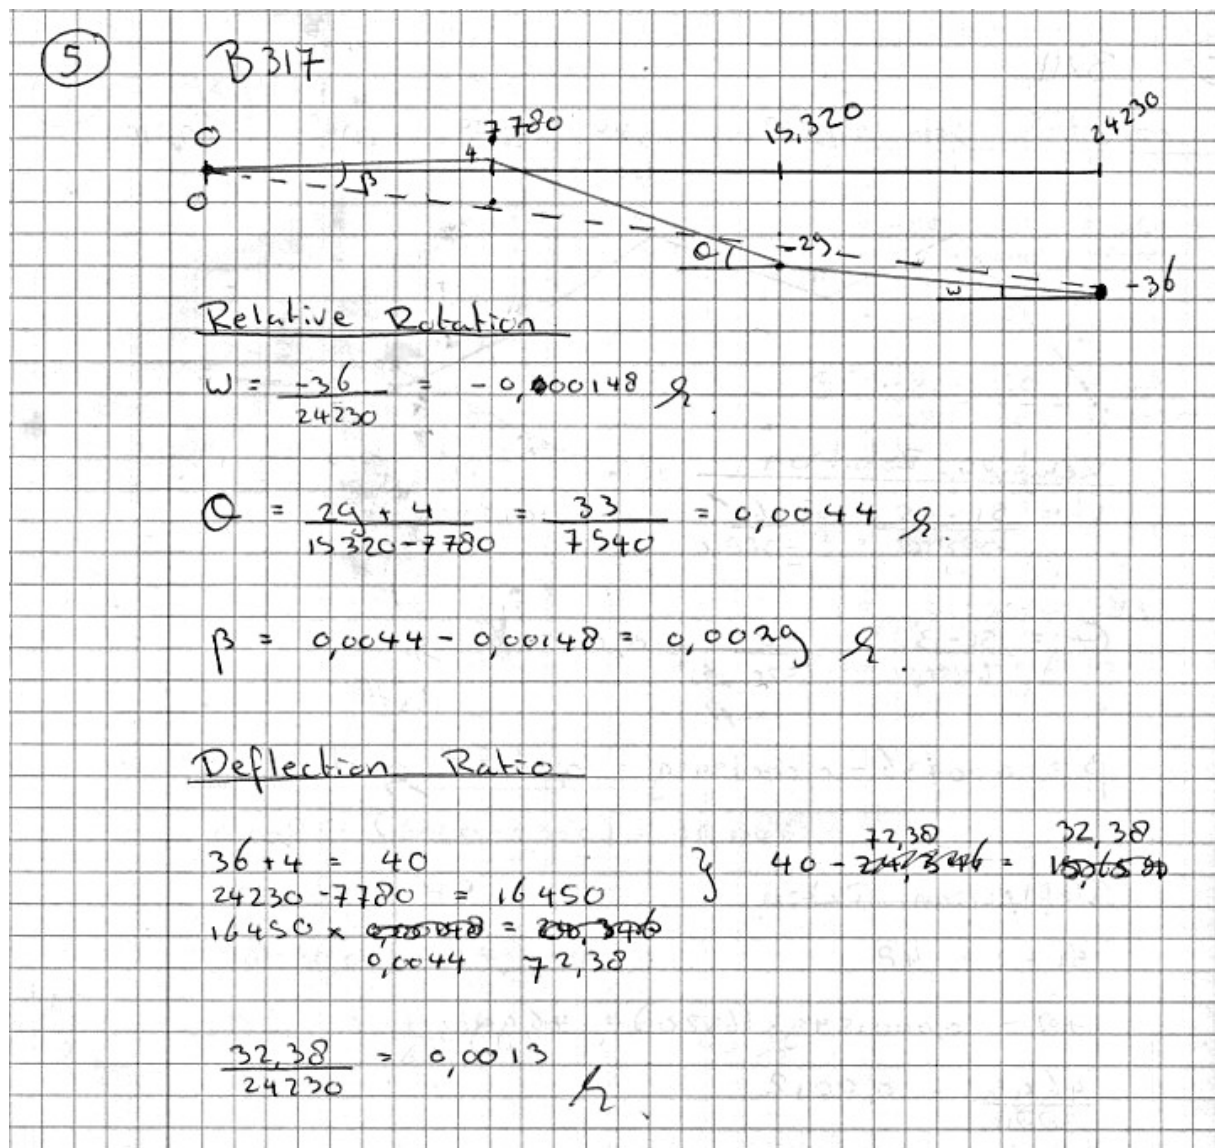 5 B317
0 7780 15,320 24230
4
0 β
θ -29
ω -36
Relative Rotation
ω = -36 / 24230 = -0,000148
θ = 29 + 4 / 15320-7780 = 33 / 7540 = 0,0044
β = 0,0044 - 0,00148 = 0,0029
Deflection Ratio
72,38 32,38
36 + 4 = 40 } 40 - =
24230 - 7780 = 16450
16450 × =
0,0044 72,38
32,38 / 24230 = 0,0013